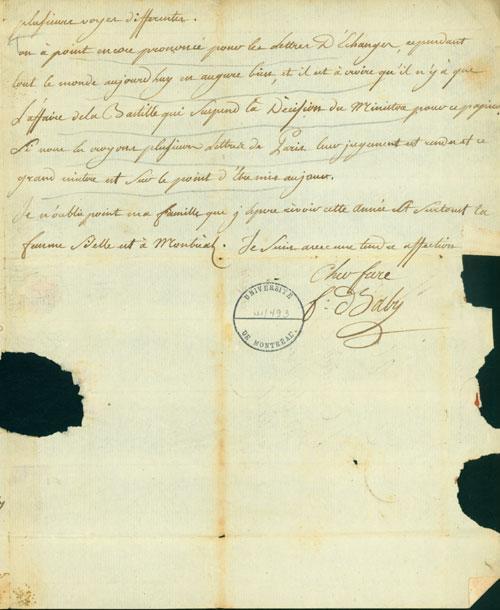 plusieurs voyes differentes.
on à point encore prononcé pour les Lettres D'Echanges, cependant
tout le monde aujourdhuy en augure bien, et il est à croire qu'il n'y à que
L'affaire de la Bastille qui suspend la Décision du Ministre pour ce papier
Si nous le croyons plusieurs Lettres de Paris leur jugement est rendu et ce
grand mistere est sur le point d'être mis au jour.
Je n'oublie point ma famille que j'espere revoir cette année et surtout la
femme Belle est à Montreal. Je suis avec une tendre affection
Cher frere
f: Baby
UNIVERSITÉ
U/493
DE MONTRÉAL